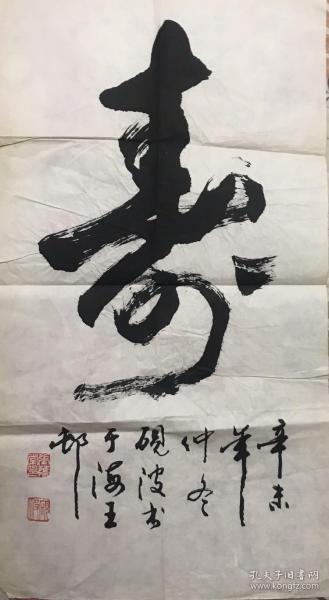 寿
辛未
年
仲冬
砚波书
于海王
邨
孔夫子旧书网
www.kongfz.com